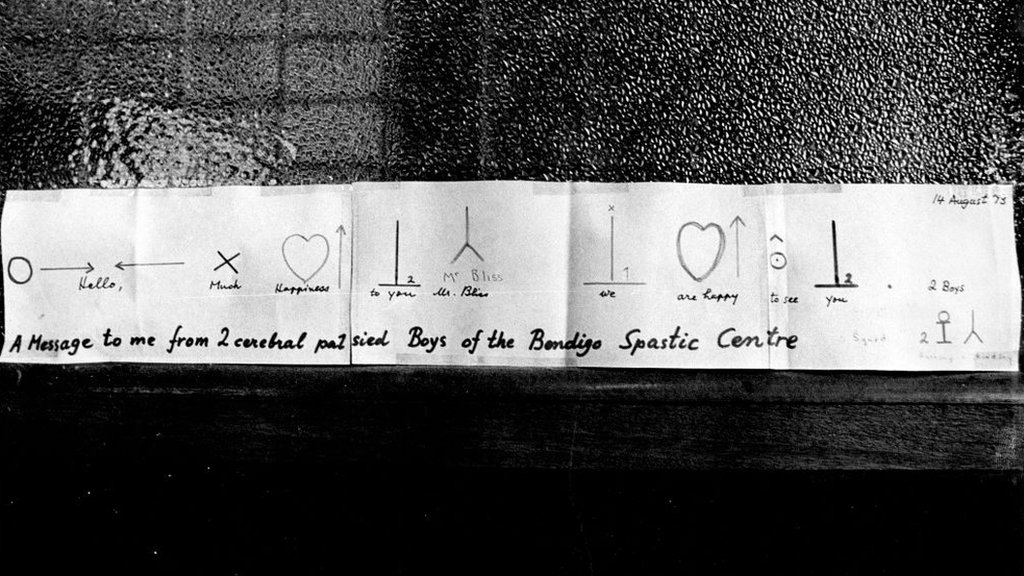 14 August '73
Mr Bliss
Hello, Much Happiness to you Mr. Bliss we are happy to see you . 2 Boys
A Message to me from 2 cerebral palsied Boys of the Bendigo Spastic Centre